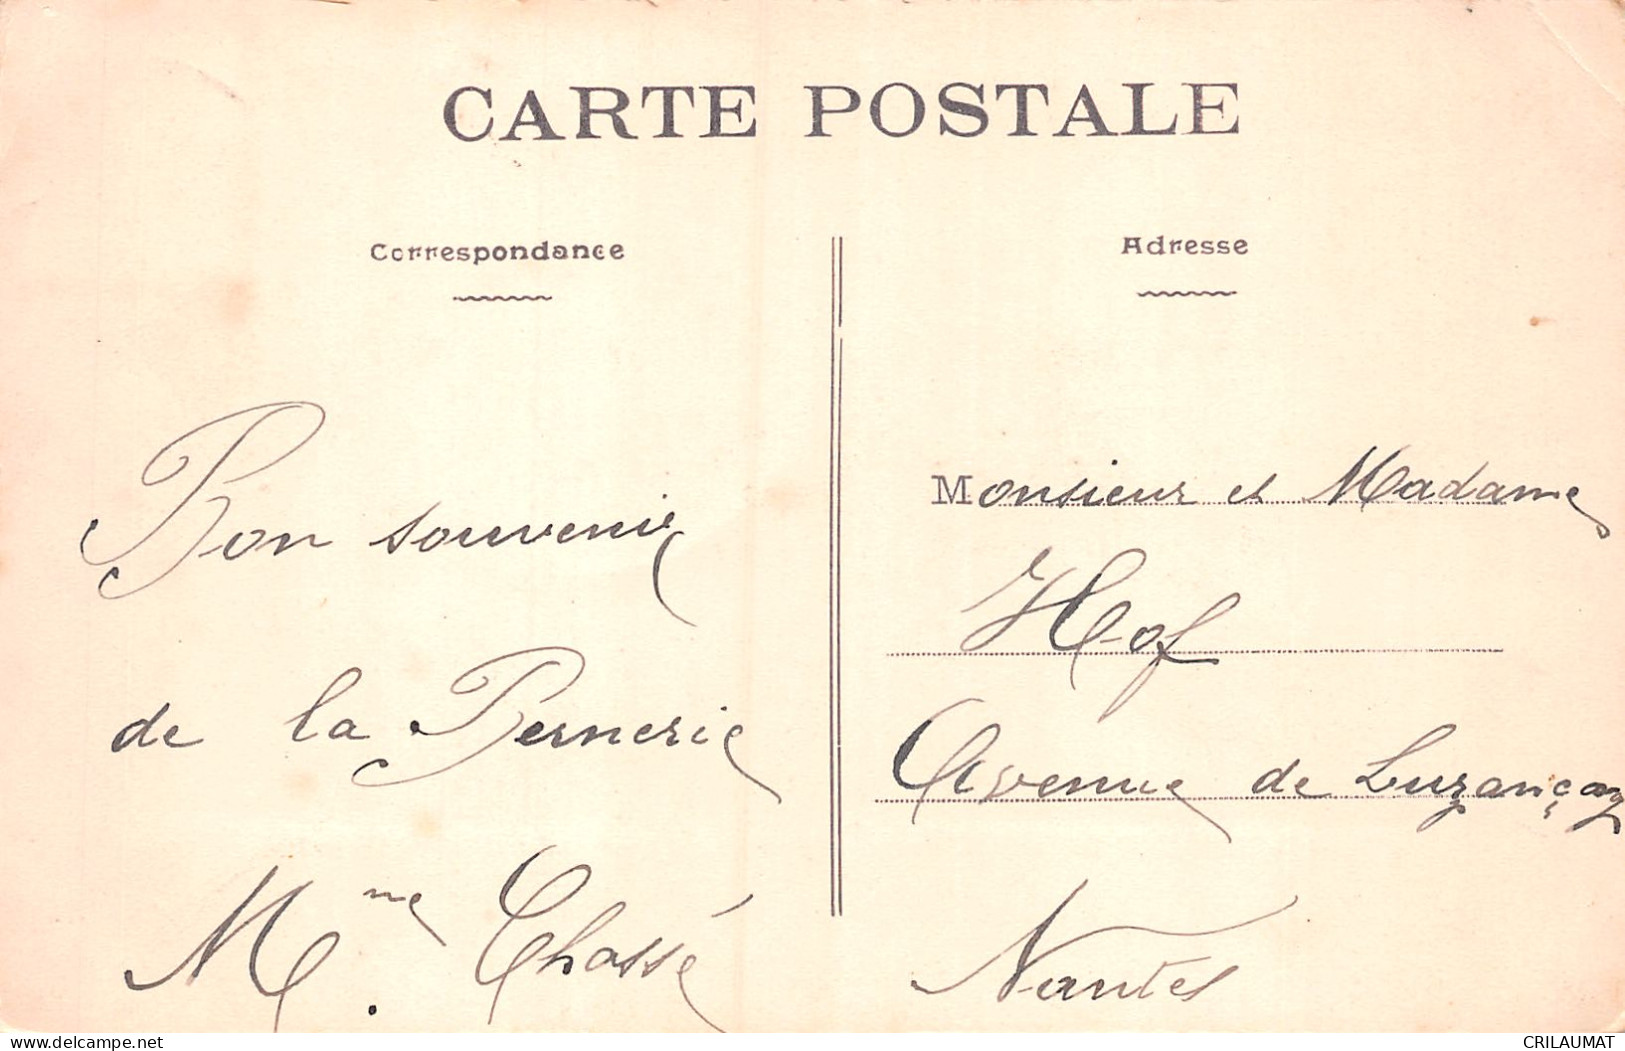 CARTE POSTALE
Correspondance
Adresse
Bon souvenir
de la Bernerie
Mme Chassé
Monsieur et Madame
Hof
Avenue de Luzançay
Nantes
delcampe.net
CRILAUMAT